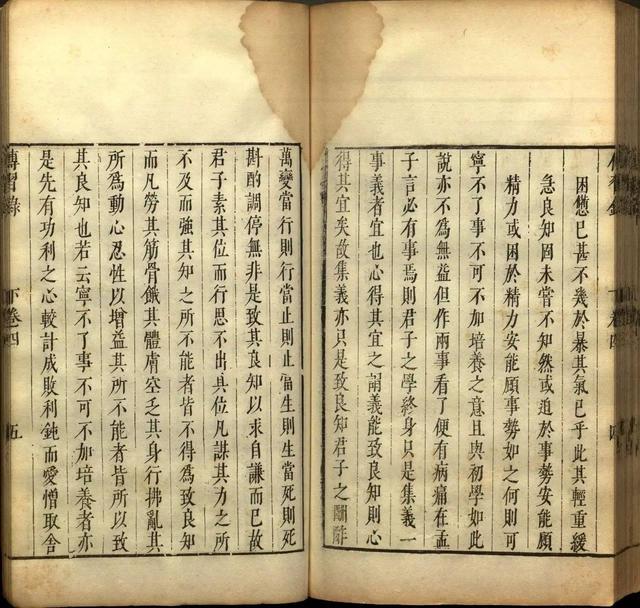 困憊已甚不幾於暴其氣已乎此其輕重緩
急良知固未嘗不知然或迫於事勢安能顧
精力或困於精力安能顧事勢如之何則可
寧不了事不可不加培養之意且與初學如此
說亦不為無益但作兩事看了便有病痛在孟
子言必有事焉則君子之學終身只是集義一
事義者宜也心得其宜之謂義能致良知則心
得其宜矣故集義亦只是致良知君子之酬酢
萬變當行則行當止則止當生則生當死則死
斟酌調停無非是致其良知以求自謙而已故
君子素其位而行思不出其位凡謀其力之所
不及而強其知之所不能者皆不得為致良知
而凡勞其筋骨餓其體膚空乏其身行拂亂其
所為動心忍性以增益其所不能者皆所以致
其良知也若云寧不了事不可不加培養者亦
是先有功利之心較計成敗利鈍而愛憎取舍
傳習錄 下卷四 五